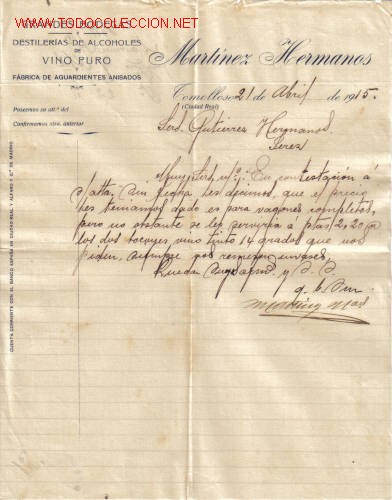 GRANDES BODEGAS
WWW.TODOCOLECCION.NET
DESTILERÍAS DE ALCOHOLES
DE
VINO PURO
Y
FÁBRICA DE AGUARDIENTES ANISADOS
Martínez Hermanos
Tomelloso 21 de Abril de 1915
(Ciudad Real)
Poseemos su att.ª del
Confirmamos ntra. anterior
Sres Gutierrez Hermanos
Jerez
Muy Sres. n/s: En contestación á
s/atta. sin fecha les decimos, que el precio
que les teniamos dado es para vagones completos,
pero no obstante se les serviria a ptas 2,20
los dos bocoyes vino tinto 14 grados que nos
piden, siempre nos remitan envases.
Quedan
q. b. s. m.
Martinez Hnos
CUENTA CORRIENTE CON EL BANCO ESPAÑA DE CIUDAD-REAL Y ALFARO Y C.ª DE MADRID